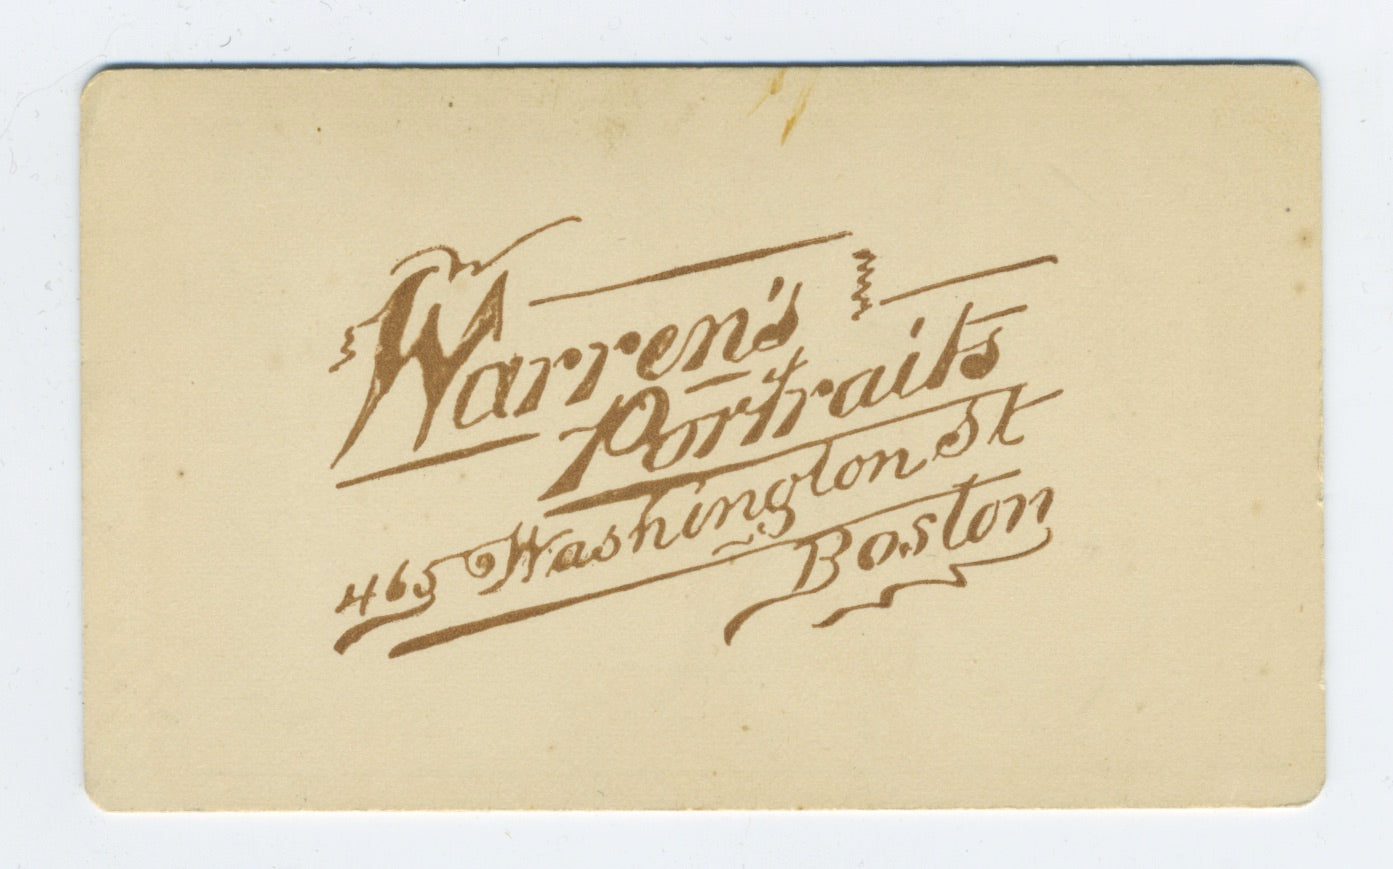 Warren's
Portraits
465 Washington St
Boston